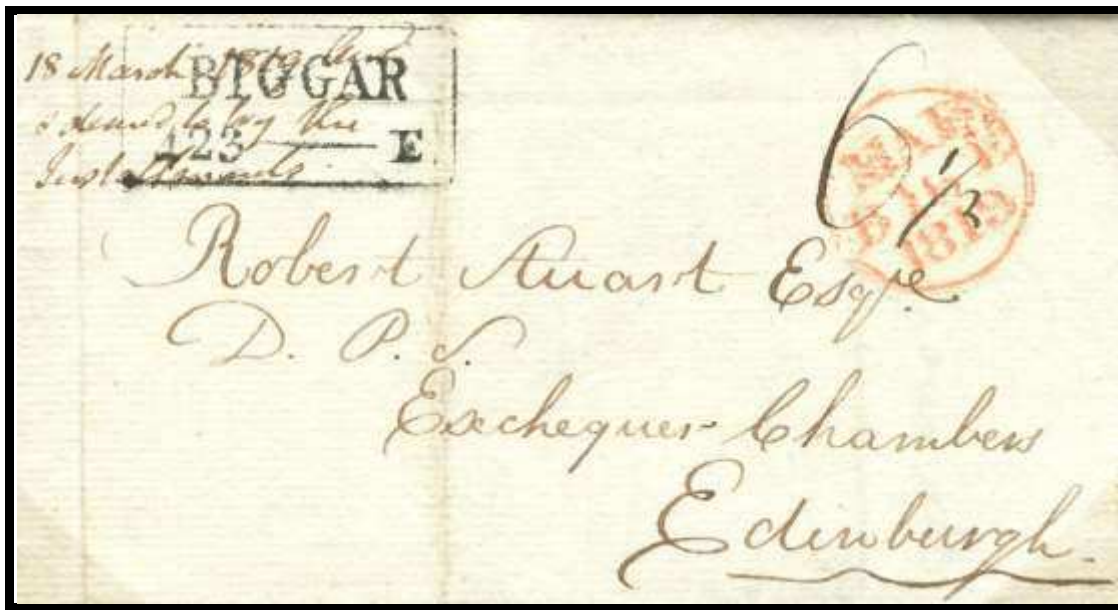 18 March 1819
BIGGAR
423 E
6 1/2
MAR
1819
Robert Stuart Esqre
D. P. S.
Exchequer Chambers
Edinburgh.